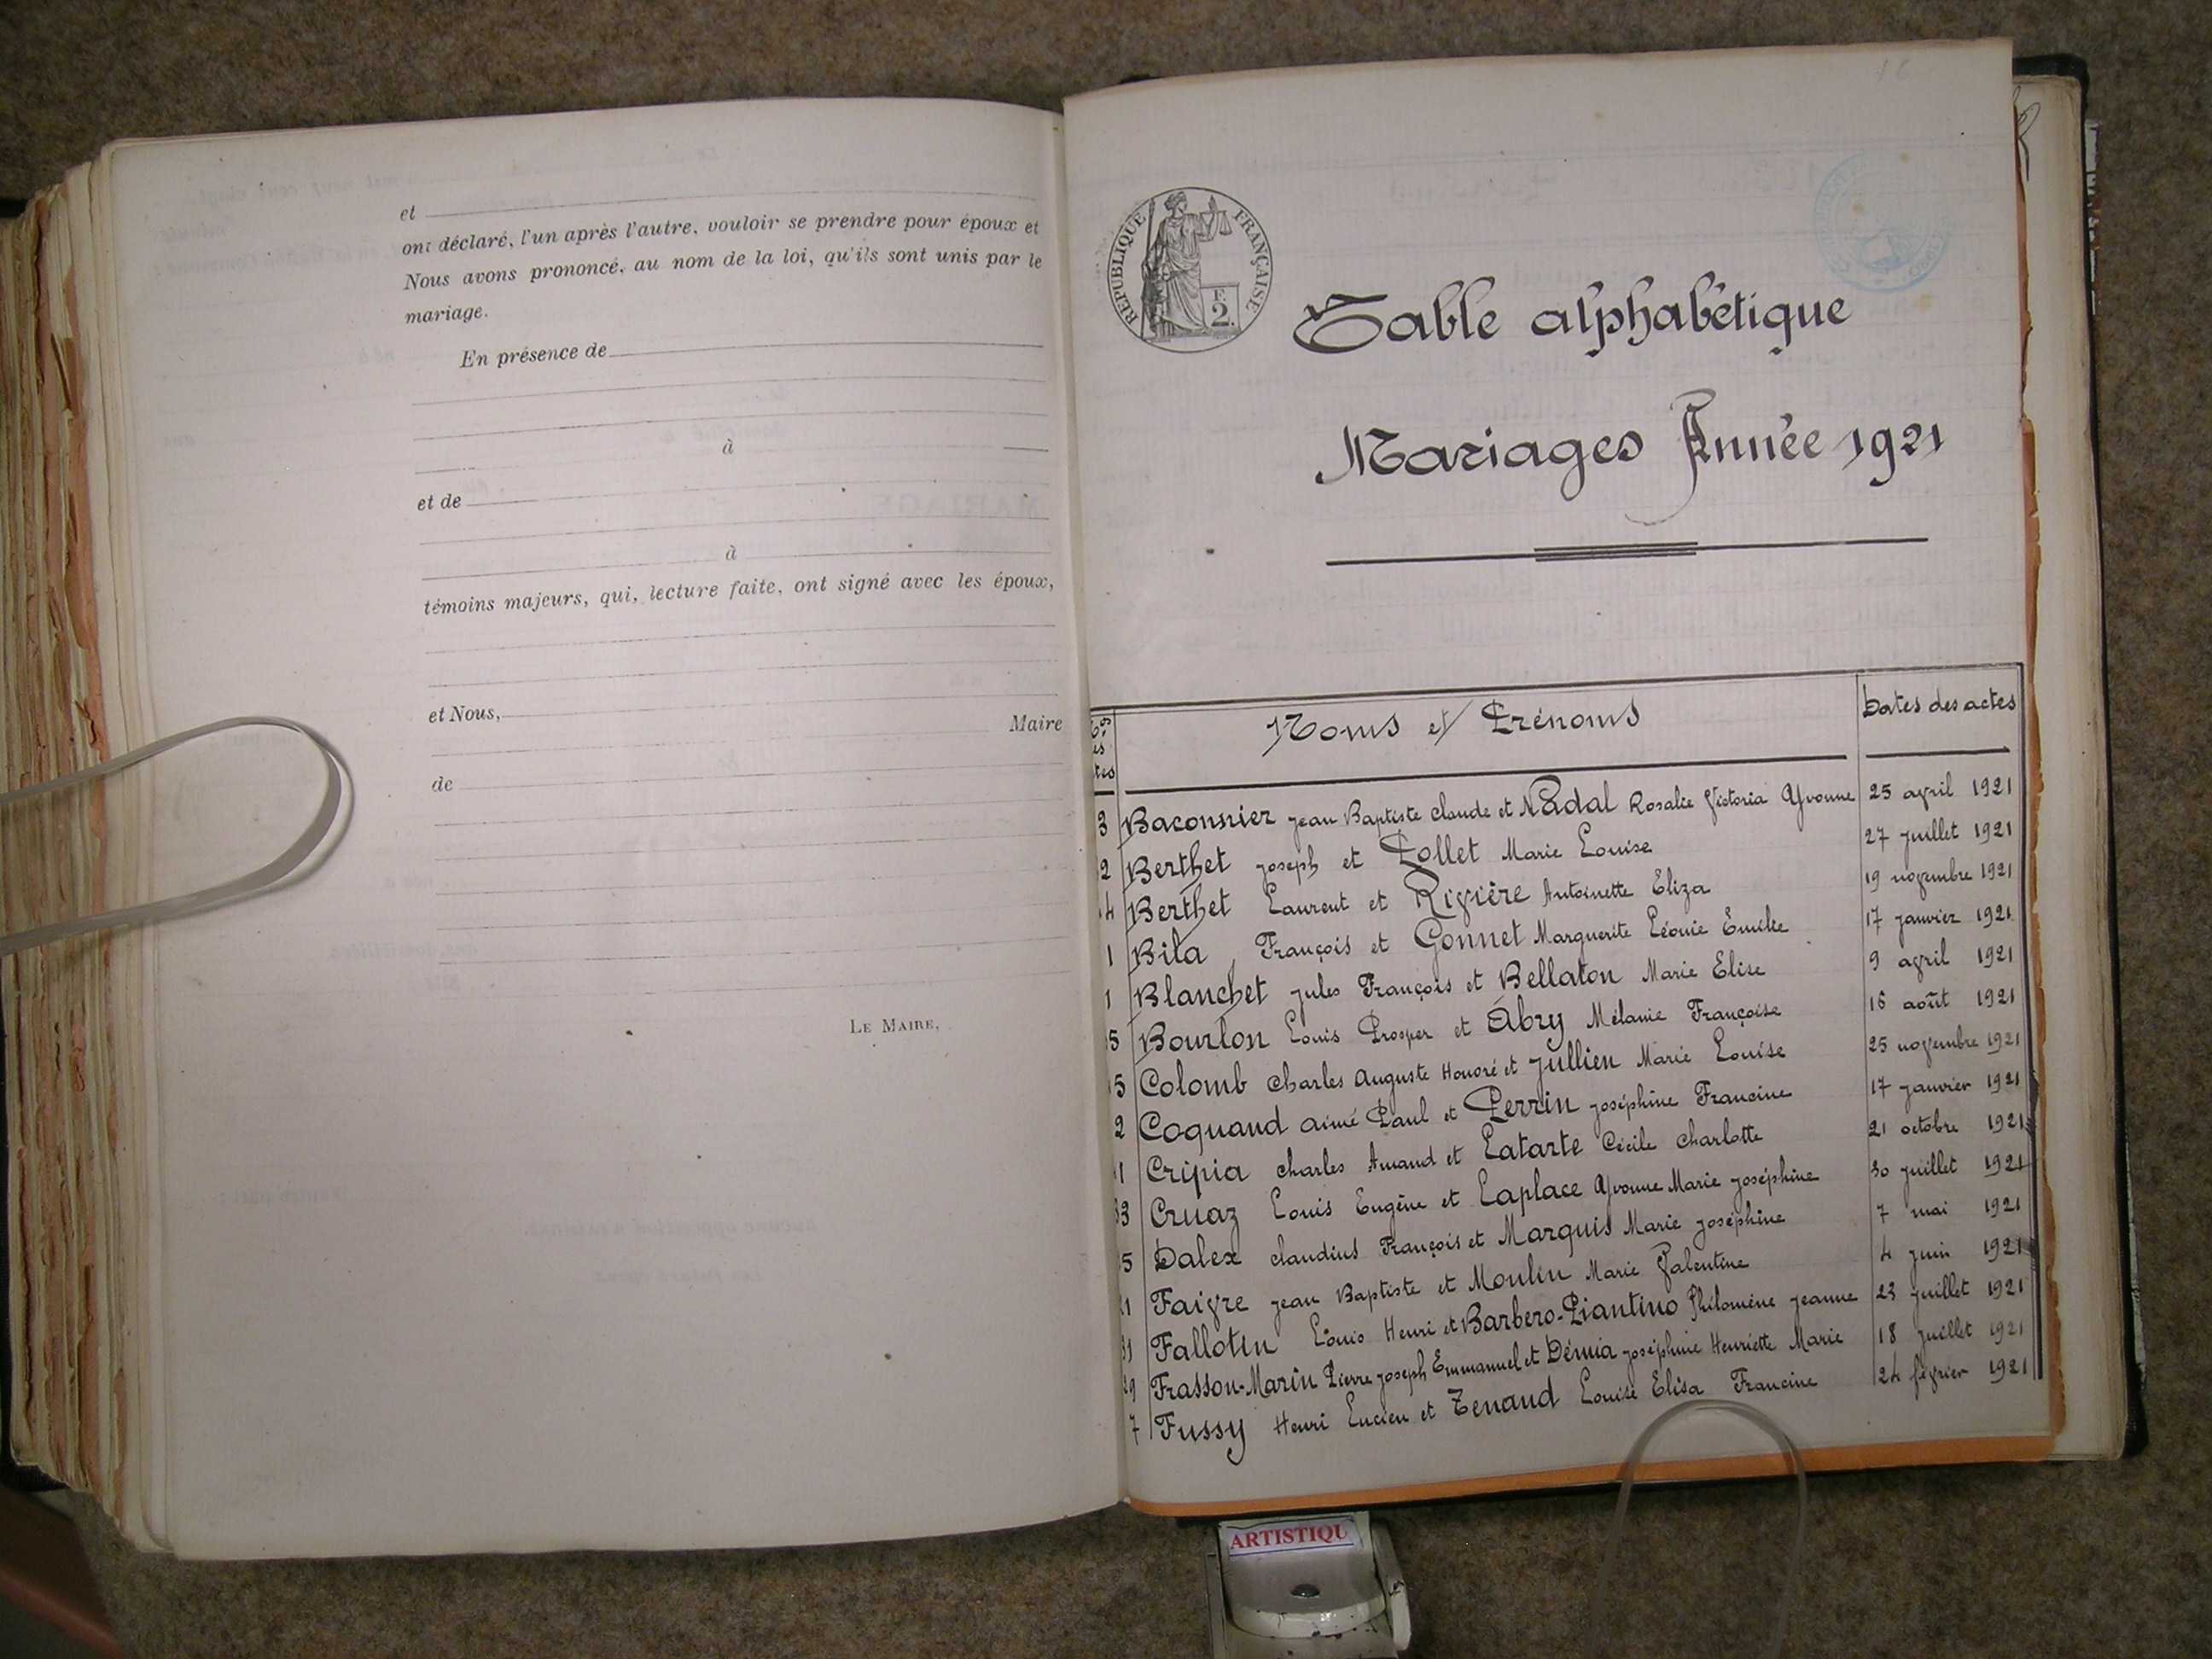 et
ont déclaré, l'un après l'autre, vouloir se prendre pour époux et
Nous avons prononcé, au nom de la loi, qu'ils sont unis par le
mariage.
En présence de
à
et de
à
témoins majeurs, qui, lecture faite, ont signé avec les époux,
et Nous,
Maire
de
LE MAIRE,
RÉPUBLIQUE FRANÇAISE
F.
2.
Table alphabétique
Mariages Année 1921
Noms et Prénoms Dates des actes
3 Baconnier Jean Baptiste Claude et Nadal Rosalie Victoria Yvonne 25 avril 1921
2 Berthet Joseph et Pollet Marie Louise 27 juillet 1921
4 Berthet Laurent et Rivière Antoinette Eliza 19 novembre 1921
1 Bila François et Gonnet Marguerite Léonie Emilie 17 janvier 1921
1 Blanchet Jules François et Bellaton Marie Elise 9 avril 1921
5 Bourlon Louis Prosper et Abry Mélanie Françoise 16 août 1921
5 Colomb Charles Auguste Honoré et Jullien Marie Louise 25 novembre 1921
2 Coquand Aimé Paul et Perrin Joséphine Francine 17 janvier 1921
1 Cripia Charles Amand et Latarte Cécile Charlotte 21 octobre 1921
33 Cruaz Louis Eugène et Laplace Yvonne Marie Joséphine 30 juillet 1921
5 Dalex Claudius François et Marquis Marie Joséphine 7 mai 1921
21 Faivre Jean Baptiste et Moulin Marie Valentine 4 juin 1921
31 Fallotin Louis Henri et Barbero-Piantino Philomène Jeanne 23 juillet 1921
29 Frasson-Marin Pierre Joseph Emmanuel et Démia Joséphine Henriette Marie 18 juillet 1921
7 Fussy Henri Lucien et Zenaud Louise Elisa Francine 24 février 1921
ARTISTIQU